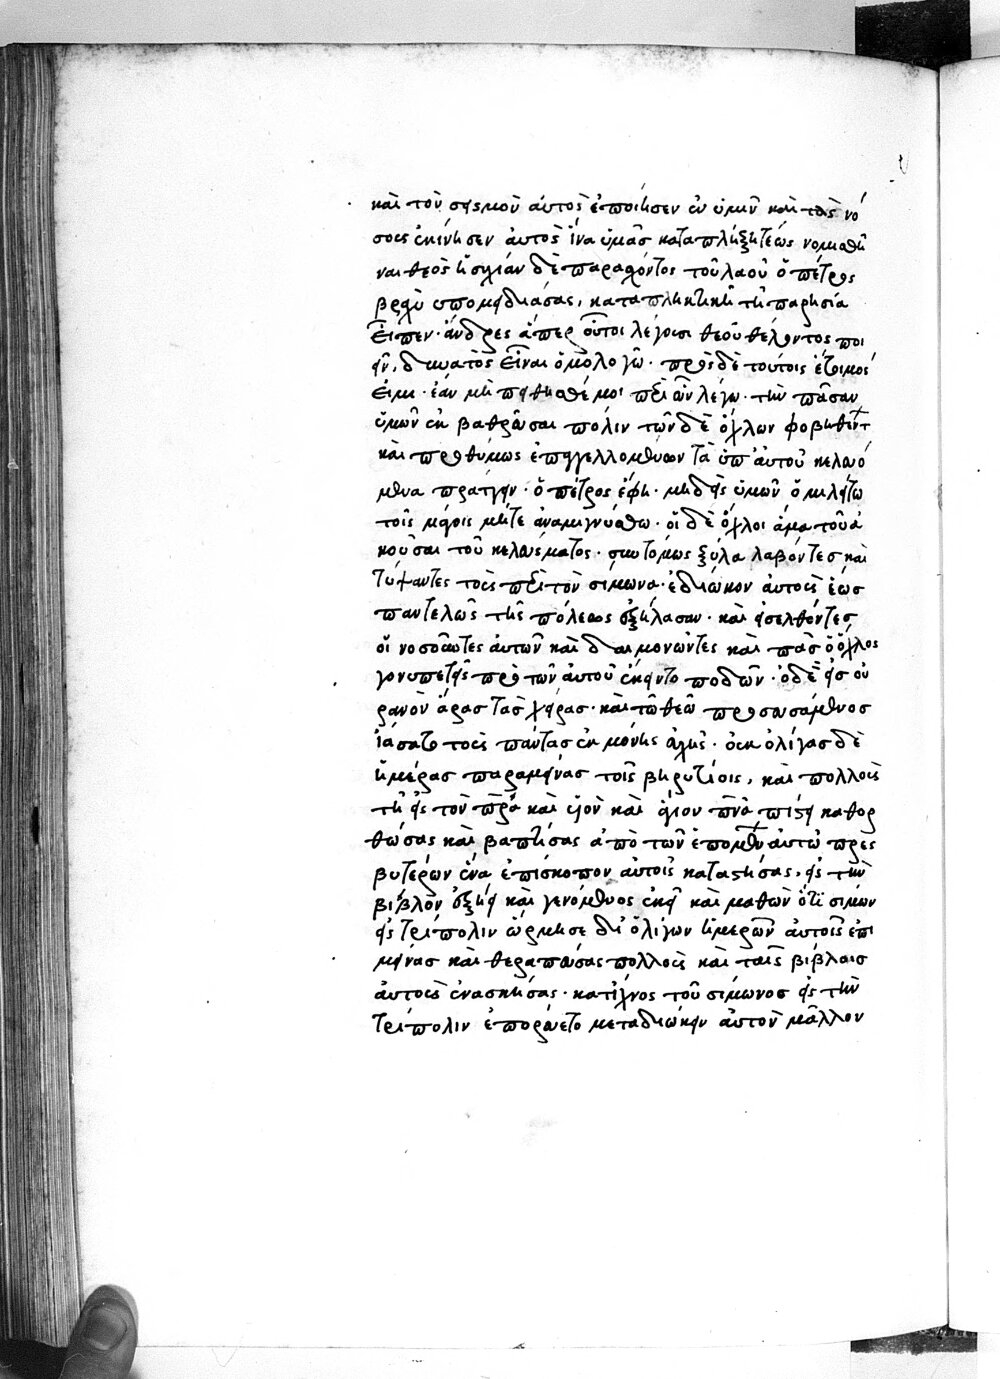 καὶ τὸν σεισμὸν αὐτὸς ἐποίησεν ἐν ὑμῖν καὶ τὰς νό
σους ἐκίνησεν αὐτὸς ἵνα ὑμᾶς καταπλήξῃ τέως νομισθῆ
ναι θεὸς ἡσυχίαν δὲ παρασχόντος τοῦ λαοῦ ὁ πέτρος
βραχὺ ὑπομειδιάσας, καταπληκτικῇ τῇ παρησία
εἶπεν· ἄνδρες ἅπερ οὗτοι λέγουσι θεοῦ θέλοντος ποι
εῖν, δυνατὸς εἶναι ὁμολογῶ· πρὸς δὲ τούτοις ἕτοιμός
εἰμι· ἐὰν μὴ πεισθῆσθέ μοι περὶ ὧν λέγω· τὴν πᾶσαν
ὑμῶν ἐκ βάθρων πόλιν τῶν δὲ ὄχλων φοβηθέντ
καὶ προθύμως ἐπαγγελλομένων τὰ ὑπ' αὐτοῦ κελευό
μενα πράττειν· ὁ πέτρος ἔφη· μηδεὶς ὑμῶν ὁμιλείτω
τοῖς μάγοις μήτε ἀναμιγνύσθω· οἱ δὲ ὄχλοι ἅμα τοῦ ἀ
κοῦσαι τοῦ κελεύσματος· συντόμως ξύλα λαβόντες καὶ
τύψαντες τοὺς περὶ τὸν σίμωνα· ἐδίωκον αὐτοὺς ἕως
παντελῶς τῆς πόλεως ἐξήλασαν· καὶ εἰσελθόντες
οἱ νοσοῦντες αὐτῶν καὶ δαιμονῶντες καὶ πᾶς ὁ ὄχλος
γονυπετεῖς πρὸ τῶν αὐτοῦ ἔκειντο ποδῶν· ὁ δὲ εἰς οὐ
ρανὸν ἄρας τὰς χεῖρας· καὶ τῷ θεῷ προσευξάμενος
ἰάσατο τοὺς πάντας ἐκ μόνης εὐχῆς· οὐκ ὀλίγας δὲ
ἡμέρας παραμείνας τοῖς βηρυτίοις, καὶ πολλοὺς
τῇ εἰς τὸν πρα καὶ υἱὸν καὶ ἅγιον πνα πίστει κατορ
θώσας καὶ βαπτίσας ἀπὸ τῶν ἑπομένων αὐτῶ πρεσ
βυτέρων ἕνα ἐπίσκοπον αὐτοῖς καταστήσας, εἰς τὴν
βίβλον ἐξῄει καὶ γενόμενος ἐκεῖ καὶ μαθὼν ὅτι σίμων
εἰς τρίπολιν ὥρμησε δι' ὀλίγων ἡμερῶν αὐτοῖς ἐπι
μείνας καὶ θεραπεύσας πολλοὺς καὶ ταῖς βίβλαις
αὐτοὺς ἐνασκήσας· κατίχνος τοῦ σίμωνος εἰς τὴν
τρίπολιν ἐπορεύετο μεταδιώκειν αὐτὸν μᾶλλον